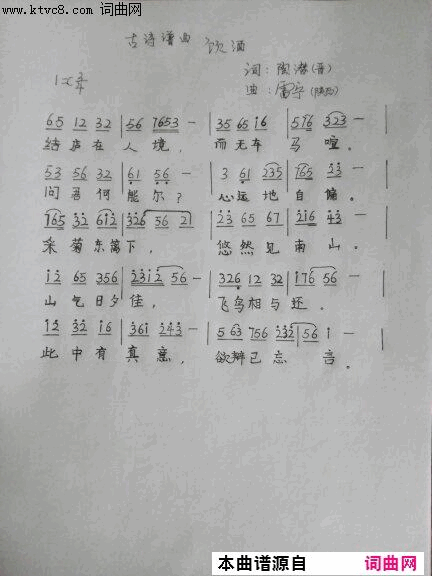 www.ktvc8.com 词曲网
古诗谱曲 饮酒
词：陶潜（晋）
1=C 3/4
曲：雷宇（陕西）
65 12 32 | 56 1653 — | 35 65 16 | 516 323 — |
结庐在人境， 而无车马喧。
53 56 32 | 61 56 — | 3 61 235 | 765 33 — |
问君何能尔？ 心远地自偏。
165 32 612 | 326 56 2 | 23 65 67 | 216 43 — |
采菊东篱下， 悠然见南山。
12 65 356 | 2312 56 — | 326 12 32 | 176 56 — |
山气日夕佳， 飞鸟相与还。
12 32 16 | 361 243 — | 5 63 756 232 | 56 1 — |
此中有真意， 欲辩已忘言。
本曲谱源自 词曲网